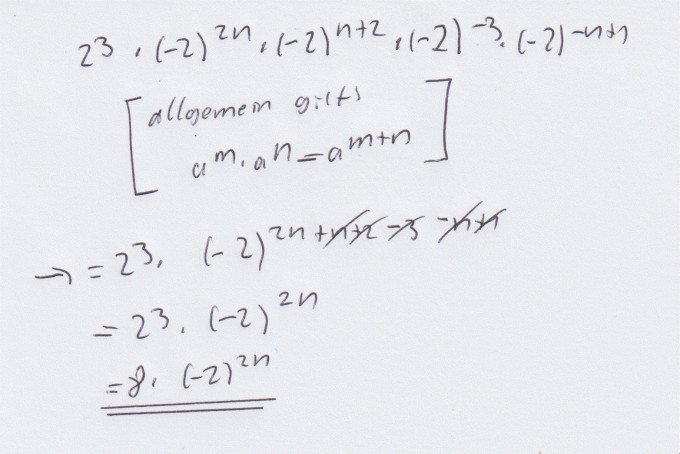 2³ · (-2)²ⁿ · (-2)ⁿ⁺² · (-2)⁻³ · (-2)⁻ⁿ⁺¹
[allgemein gilt:
aᵐ · aⁿ = aᵐ⁺ⁿ]
→ = 2³ · (-2)²ⁿ⁺ⁿ⁺²⁻³⁻ⁿ⁺¹
= 2³ · (-2)²ⁿ
= 8 · (-2)²ⁿ